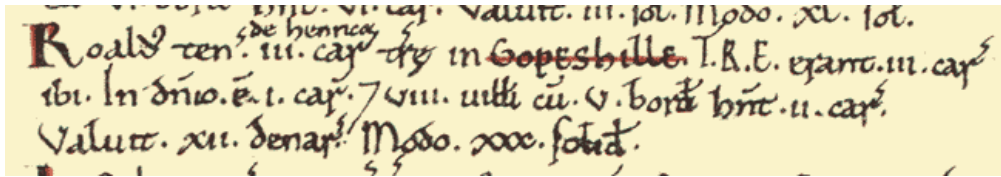 car. Valuit. iii. sol. Modo. xl. sol.
Roald ten̄. de henrico iii. car̄ tr̄e in Gopeshille. T.R.E. erant. iii. car̄
ibi. In dn̄io. ē. i. car̄. ⁊ viii. uill̄i cū. v. bord̄ hn̄t. ii. car̄.
Valuit. xii. denar̄. Modo. xxx. solid̄.